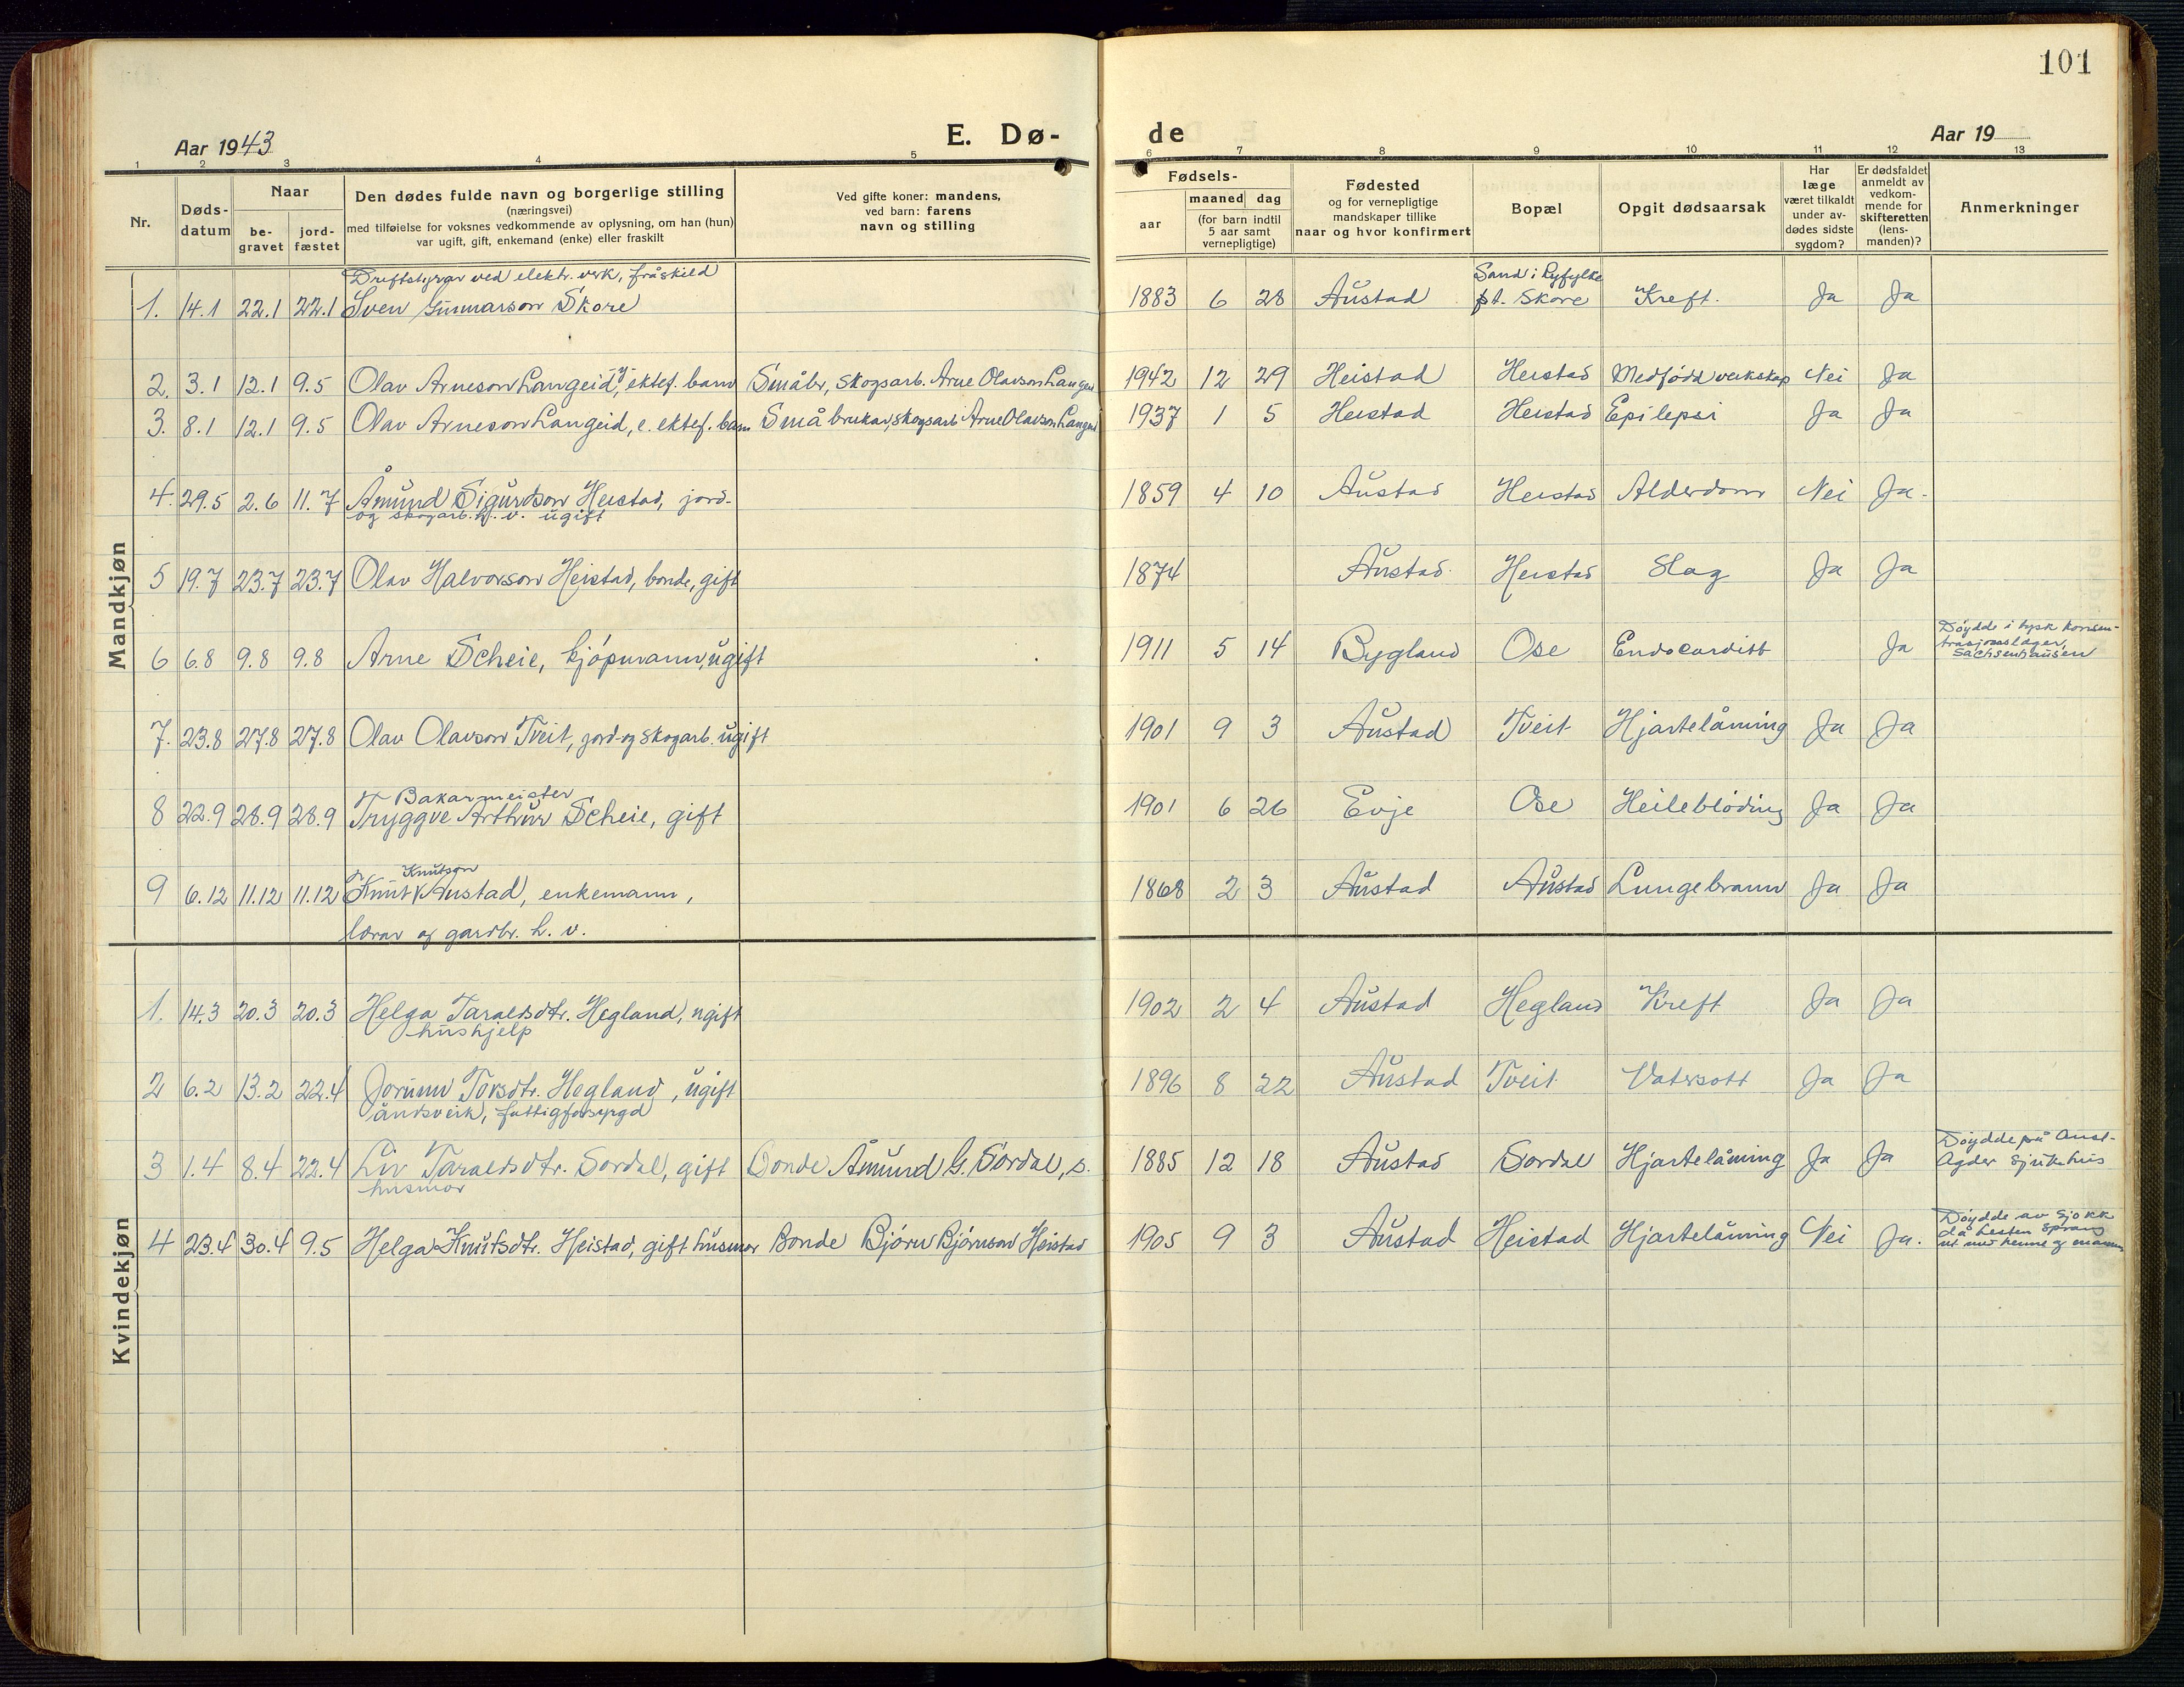 101
Aar 1943 E. Dø- de Aar 19
1 2 3 4 5 6 7 8 9 10 11 12 13
Nr. Døds-datum Naar be-gravet jord-fæstet Den dødes fulde navn og borgerlige stilling (næringsvei) med tilføielse for voksnes vedkommende av oplysning, om han (hun) var ugift, gift, enkemand (enke) eller fraskilt Ved gifte koner: mandens, ved barn: farens navn og stilling Fødsels- aar maaned dag (for barn indtil 5 aar samt vernepligtige) Fødested og for vernepligtige mandskaper tillike naar og hvor konfirmert Bopæl Opgit dødsaarsak Har læge været tilkaldt under av-dødes sidste sygdom? Er dødsfaldet anmeldt av vedkom-mende for skifteretten (lens-manden)? Anmerkninger
Mandkjøn
Driftstyrar ved elektr. verk, fråskild Sand i Ryfylke
1. 14.1 22.1 22.1 Sven Gunnarson Skore 1883 6 28 Austad p.t. Skore Kreft. Ja Ja
2. 3.1 12.1 9.5 Olav Arneson Langeid, y. ektef. barn Småbr, skogsarb. Arne Olavson Langeid 1942 12 29 Heistad Heistad Medfødd veikskap Nei Ja
3. 8.1 12.1 9.5 Olav Arneson Langeid, e. ektef. barn Småbrukar, skogsarb Arne Olavson Langeid 1937 1 5 Heistad Heistad Epilepsi Ja Ja
4. 29.5 2.6 11.7 Åmund Sigurdson Heistad, jord- 1859 4 10 Austad Heistad Alderdom Nei Ja.
og skogarb. h. v. ugift
5 19.7 23.7 23.7 Olav Halvorson Heistad, bonde, gift 1874 Austad. Heistad Slag Ja Ja
6 6.8 9.8 9.8 Arne Scheie, kjøpmann, ugift 1911 5 14 Bygland Ose Endocarditt Ja Døydde i tysk konsen-
trasjonslager,
Sachsenhausen
7. 23.8 27.8 27.8 Olav Olavson Tveit, jord- og skogarb. ugift 1901 9 3 Austad Tveit Hjartelåming Ja Ja
Bakarmeister
8 22.9 28.9 28.9 Tryggve Arthur Scheie, gift 1901 6 26 Evje Ose Heilebløding Ja Ja
Knutson
9 6.12 11.12 11.12 Knut Austad, enkemann, 1868 2 3 Austad Austad Lungebrann Ja Ja
lærar og gardbr. h. v.
Kvindekjøn
1. 14.3 20.3 20.3 Helga Taraldsdtr. Hegland, ugift 1902 2 4 Austad Hegland Kreft Ja Ja
hushjelp
2 6.2 13.2 22.4 Jorunn Torsdtr. Hegland, ugift 1896 8 22 Austad Tveit Vatersott Ja Ja
åndsveik, fattigforsyrgd
3 1.4 8.4 22.4 Liv Taraldsdtr. Sordal, gift Bonde Åmund G. Sordal, s. 1885 12 18 Austad Sordal Hjartelåming Ja Ja Døydde på Aust-
husmor Agder sjukehus
4 23.4 30.4 9.5 Helga Knutsdtr. Heistad, gift husmor Bonde Bjørn Bjørnson Heistad 1905 9 3 Austad Heistad Hjartelåming Nei Ja. Døydde av sjokk
då hesten sprang
ut med henne og mannen